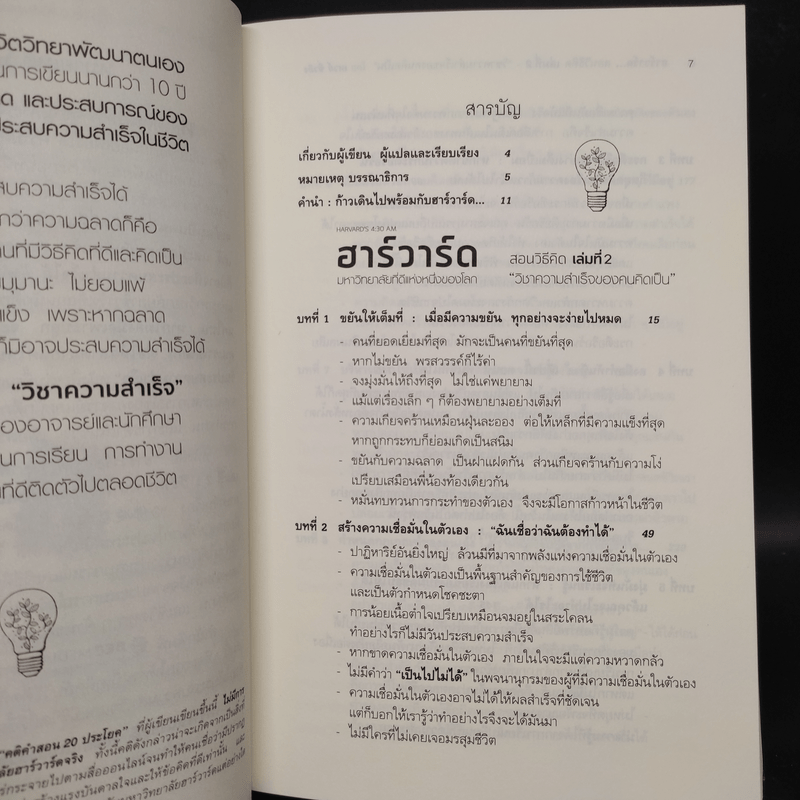 วิตวิทยาพัฒนาตนเอง
นการเขียนนานกว่า 10 ปี
ด และประสบการณ์ของ
ประสบความสำเร็จในชีวิต
สบความสำเร็จได้
กว่าความฉลาดก็คือ
านที่มีวิธีคิดที่ดีและคิดเป็น
มุมานะ ไม่ยอมแพ้
แข็ง เพราะหากฉลาด
ก็มิอาจประสบความสำเร็จได้
“วิชาความสำเร็จ”
ของอาจารย์และนักศึกษา
นการเรียน การทำงาน
ที่ดีติดตัวไปตลอดชีวิต
“คติคำสอน 20 ประโยค” ที่ผู้เขียนเขียนขึ้นนี้ ไม่มีการ
ลัยฮาร์วาร์ดจริง ทั้งนี้คติดังกล่าวน่าจะเกิดจากเป็นสิ่งที่
ร่กระจายไปตามสื่อออนไลน์จนทำให้คนเชื่อว่ามีปรากฏ
สร้างแรงบันดาลใจและให้ข้อคิดที่ดีเท่านั้น และ
มหาวิทยาลัยฮาร์วาร์ดแต่อย่างใด
7
สารบัญ
เกี่ยวกับผู้เขียน ผู้แปลและเรียบเรียง 4
หมายเหตุ บรรณาธิการ 5
คำนำ : ก้าวเดินไปพร้อมกับฮาร์วาร์ด... 11
HARVARD'S 4:30 A.M
ฮาร์วาร์ด สอนวิธีคิด เล่มที่ 2
มหาวิทยาลัยที่ดีแห่งหนึ่งของโลก “วิชาความสำเร็จของคนคิดเป็น”
บทที่ 1 ขยันให้เต็มที่ : เมื่อมีความขยัน ทุกอย่างจะง่ายไปหมด 15
- คนที่ยอดเยี่ยมที่สุด มักจะเป็นคนที่ขยันที่สุด
- หากไม่ขยัน พรสวรรค์ก็ไร้ค่า
- จงมุ่งมั่นให้ถึงที่สุด ไม่ใช่แค่พยายาม
- แม้แต่เรื่องเล็ก ๆ ก็ต้องพยายามอย่างเต็มที่
- ความเกียจคร้านเหมือนฝุ่นละออง ต่อให้เหล็กที่มีความแข็งที่สุด
หากถูกกระทบก็ย่อมเกิดเป็นสนิม
- ขยันกับความฉลาด เป็นฝาแฝดกัน ส่วนเกียจคร้านกับความโง่
เปรียบเสมือนพี่น้องท้องเดียวกัน
- หมั่นทบทวนการกระทำของตัวเอง จึงจะมีโอกาสก้าวหน้าในชีวิต
บทที่ 2 สร้างความเชื่อมั่นในตัวเอง : “ฉันเชื่อว่าฉันต้องทำได้” 49
- ปาฏิหาริย์อันยิ่งใหญ่ ล้วนมีที่มาจากพลังแห่งความเชื่อมั่นในตัวเอง
- ความเชื่อมั่นในตัวเองเป็นพื้นฐานสำคัญของการใช้ชีวิต
และเป็นตัวกำหนดโชคชะตา
- การน้อยเนื้อต่ำใจเปรียบเหมือนจมอยู่ในสระโคลน
ทำอย่างไรก็ไม่มีวันประสบความสำเร็จ
- หากขาดความเชื่อมั่นในตัวเอง ภายในใจจะมีแต่ความหวาดกลัว
- ไม่มีคำว่า “เป็นไปไม่ได้” ในพจนานุกรมของผู้ที่มีความเชื่อมั่นในตัวเอง
- ความเชื่อมั่นในตัวเองอาจไม่ได้ให้ผลสำเร็จที่ชัดเจน
แต่ก็บอกให้เรารู้ว่าทำอย่างไรจึงจะได้มันมา
- ไม่มีใครที่ไม่เคยเจอมรสุมชีวิต